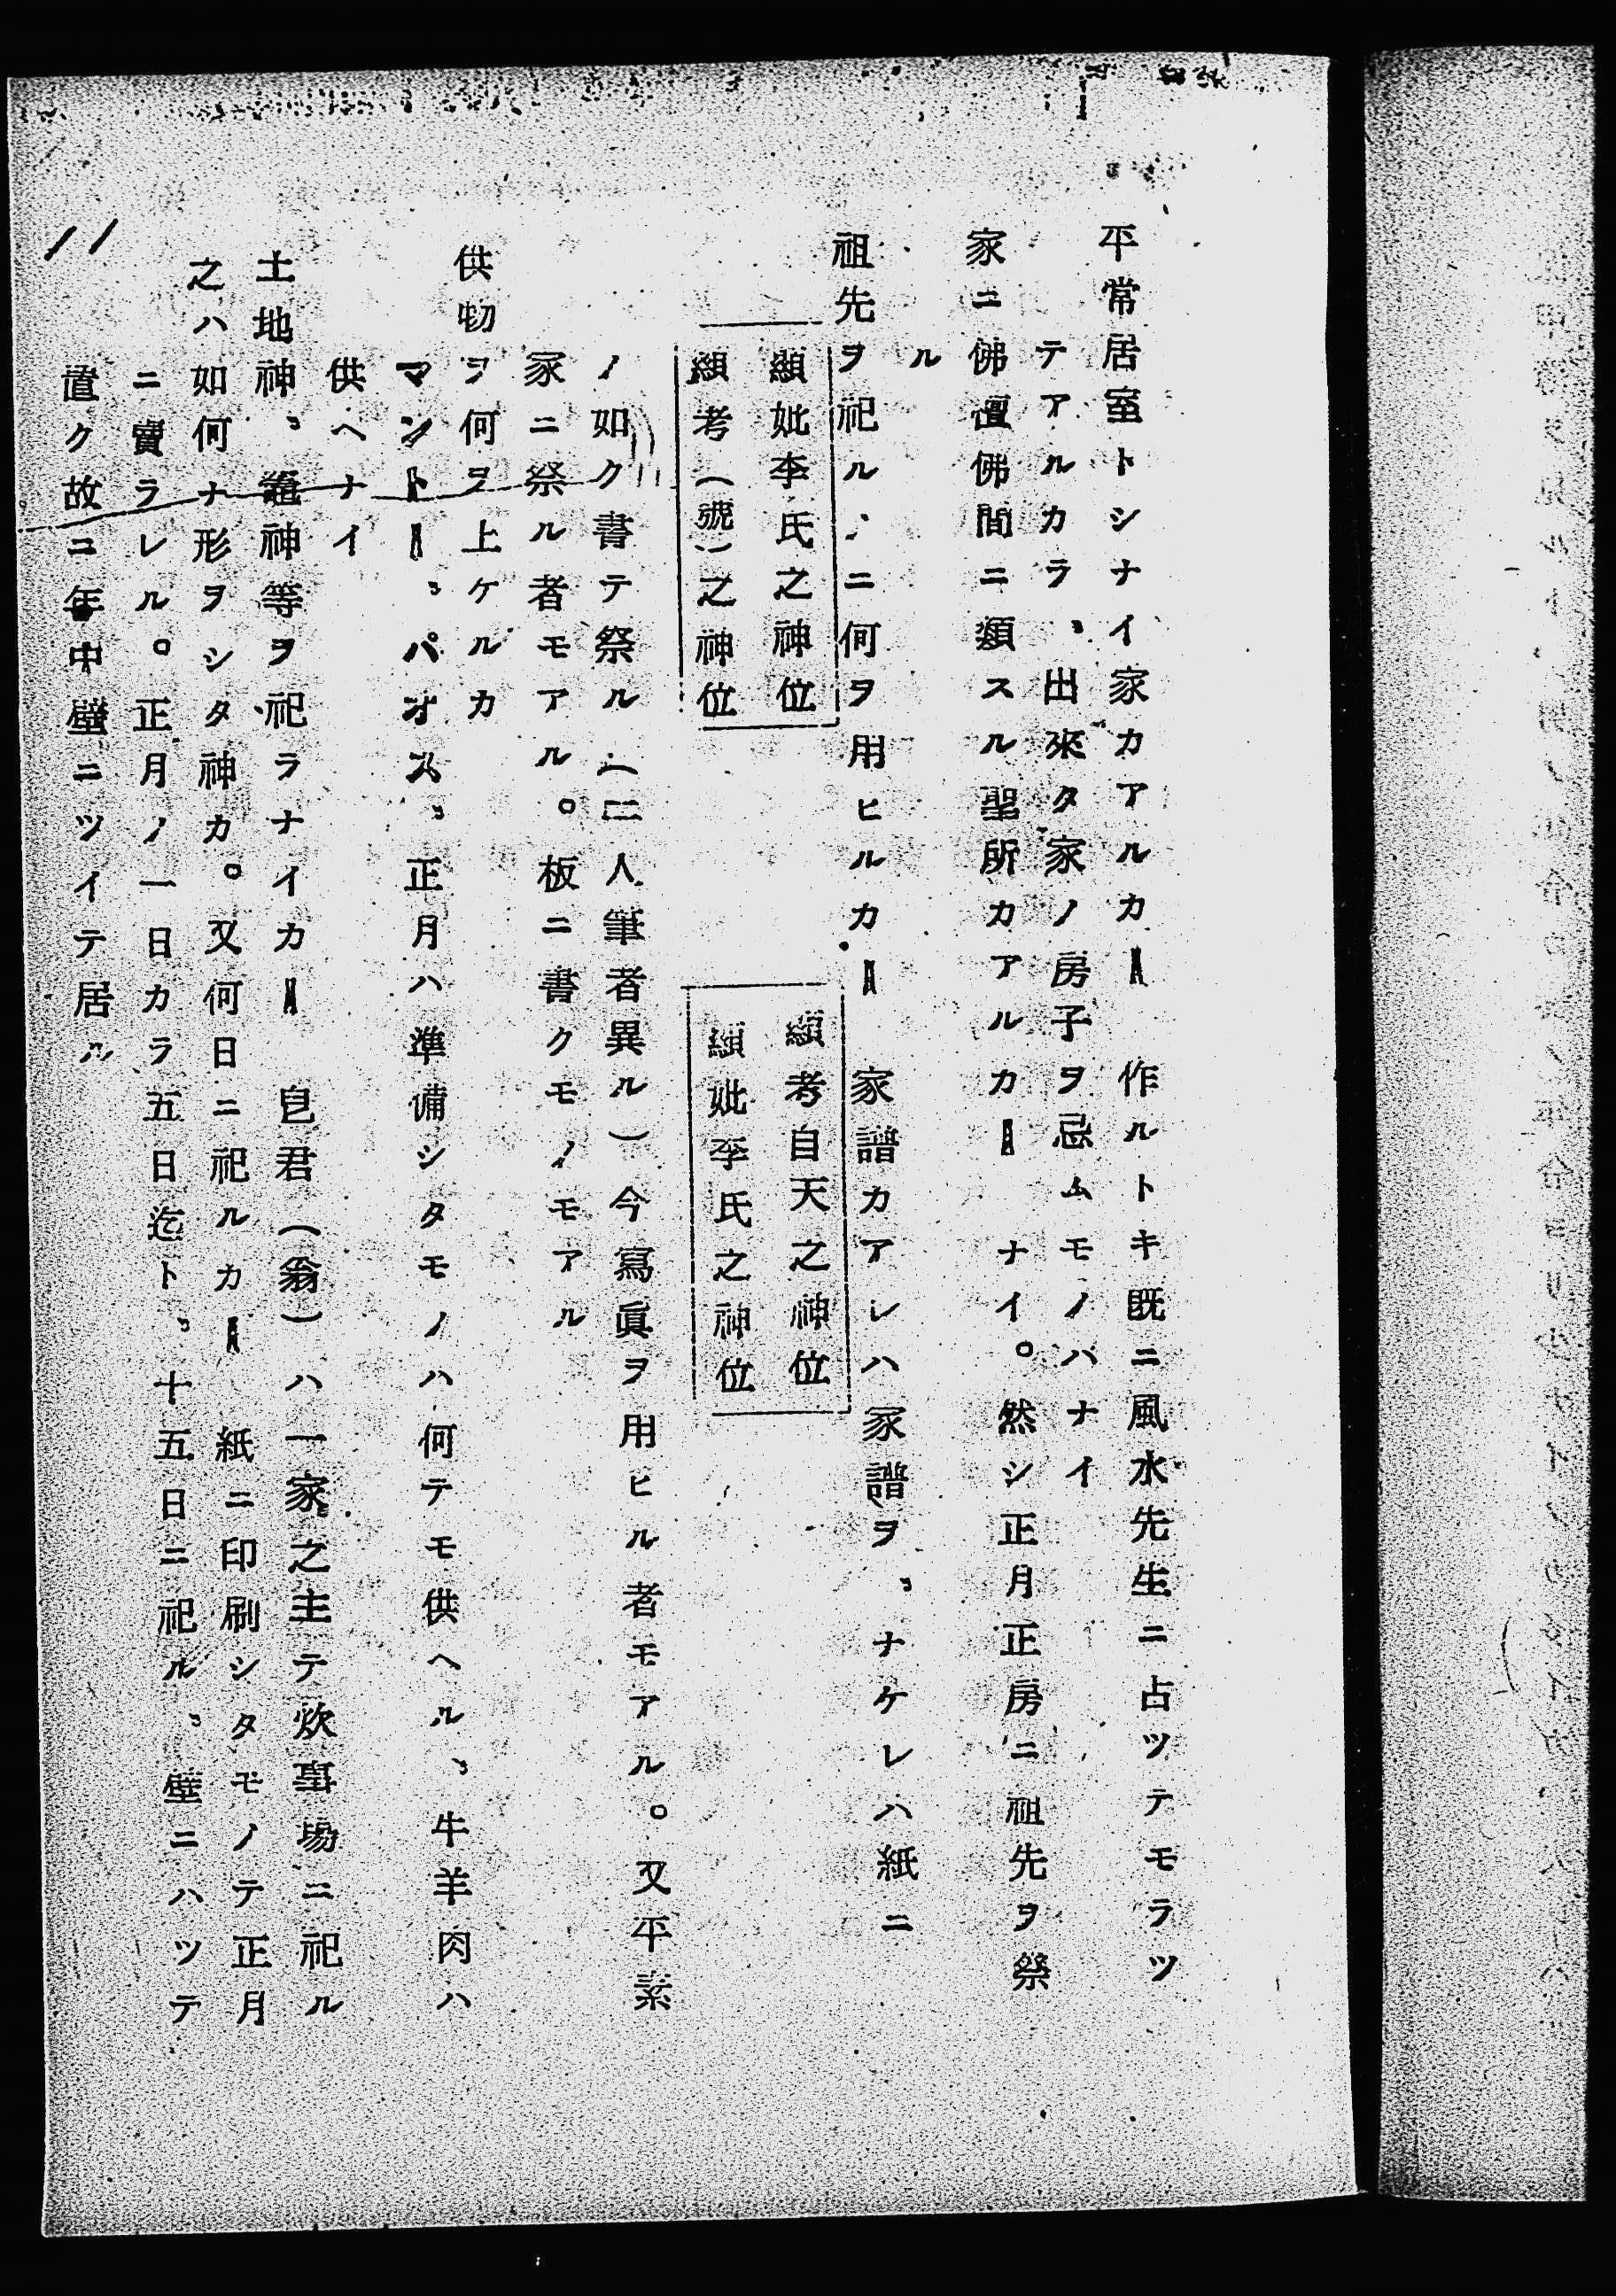 平常居室トシナイ家カアルカ━　作ルトキ既ニ風水先生ニ占ツテモラツ
テアルカラ、出來タ家ノ房子ヲ忌ムモノハナイ
家ニ佛壇佛間ニ類スル聖所カアルカ━　ナイ。然シ正月正房ニ祖先ヲ祭
ル
祖先ヲ祀ル、ニ何ヲ用ヒルカ━　家譜カアレハ家譜ヲ、ナケレハ紙ニ
顯妣李氏之神位
顯考（號）之神位
顯考自天之神位
顯妣李氏之神位
ノ如ク書テ祭ル（二人筆者異ル）今寫眞ヲ用ヒル者モアル。又平素
家ニ祭ル者モアル。板ニ書クモノモアル
供物ヲ何ヲ上ケルカ
マントー、パオス、正月ハ準備シタモノハ何テモ供ヘル、牛羊肉ハ
供ヘナイ
土地神、神等ヲ祀ラナイカ━　皀君（翁）ハ一家之主テ炊事場ニ祀ル
之ハ如何ナ形ヲシタ神カ。又何日ニ祀ルカ━　紙ニ印刷シタモノテ正月
ニ賣ラレル。正月ノ一日カラ五日迄ト、十五日ニ祀ル、壁ニハツテ
置ク故ニ年中壁ニツイテ居ル